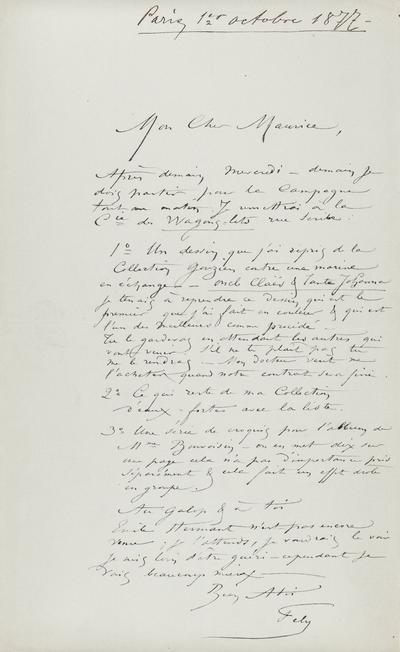 Paris, 1er octobre 1877 -
Mon Cher Maurice,
Après demain, Mercredi - demain je
dois partir pour la Campagne
tout au matin. Je remettrai à la
Cie des Wagons-lits rue Scribe.
1o Un dessin que j'ai repris de la
Collection Gouzien contre une marine
en échange. - oncle Claës & tante Johanna
Je tenais à reprendre ce dessin qui est le
premier que j'ai fait en couleur & qui est
l'un des meilleurs comme procédé.
Tu le garderas en attendant les autres qui
vont venir. S'il ne te plait pas tu
me le rendras. Mon docteur veut me
l'acheter quand notre contrat sera fini.
2o Ce qui reste de ma Collection
d'eaux-fortes avec la liste.
3o Une série de croquis pour l'album de
Mme Bonvoisin - on en met dix sur
une page cela n'a pas d'importance pris
séparément & cela fait un effet drôle
en groupe.
Au Galop & à toi
Emile Hermant n'est pas encore
venu, je l'attends, je voudrais le voir
Je suis loin d'être guéri - cependant je
vais beaucoup mieux
Bien à toi
Fély